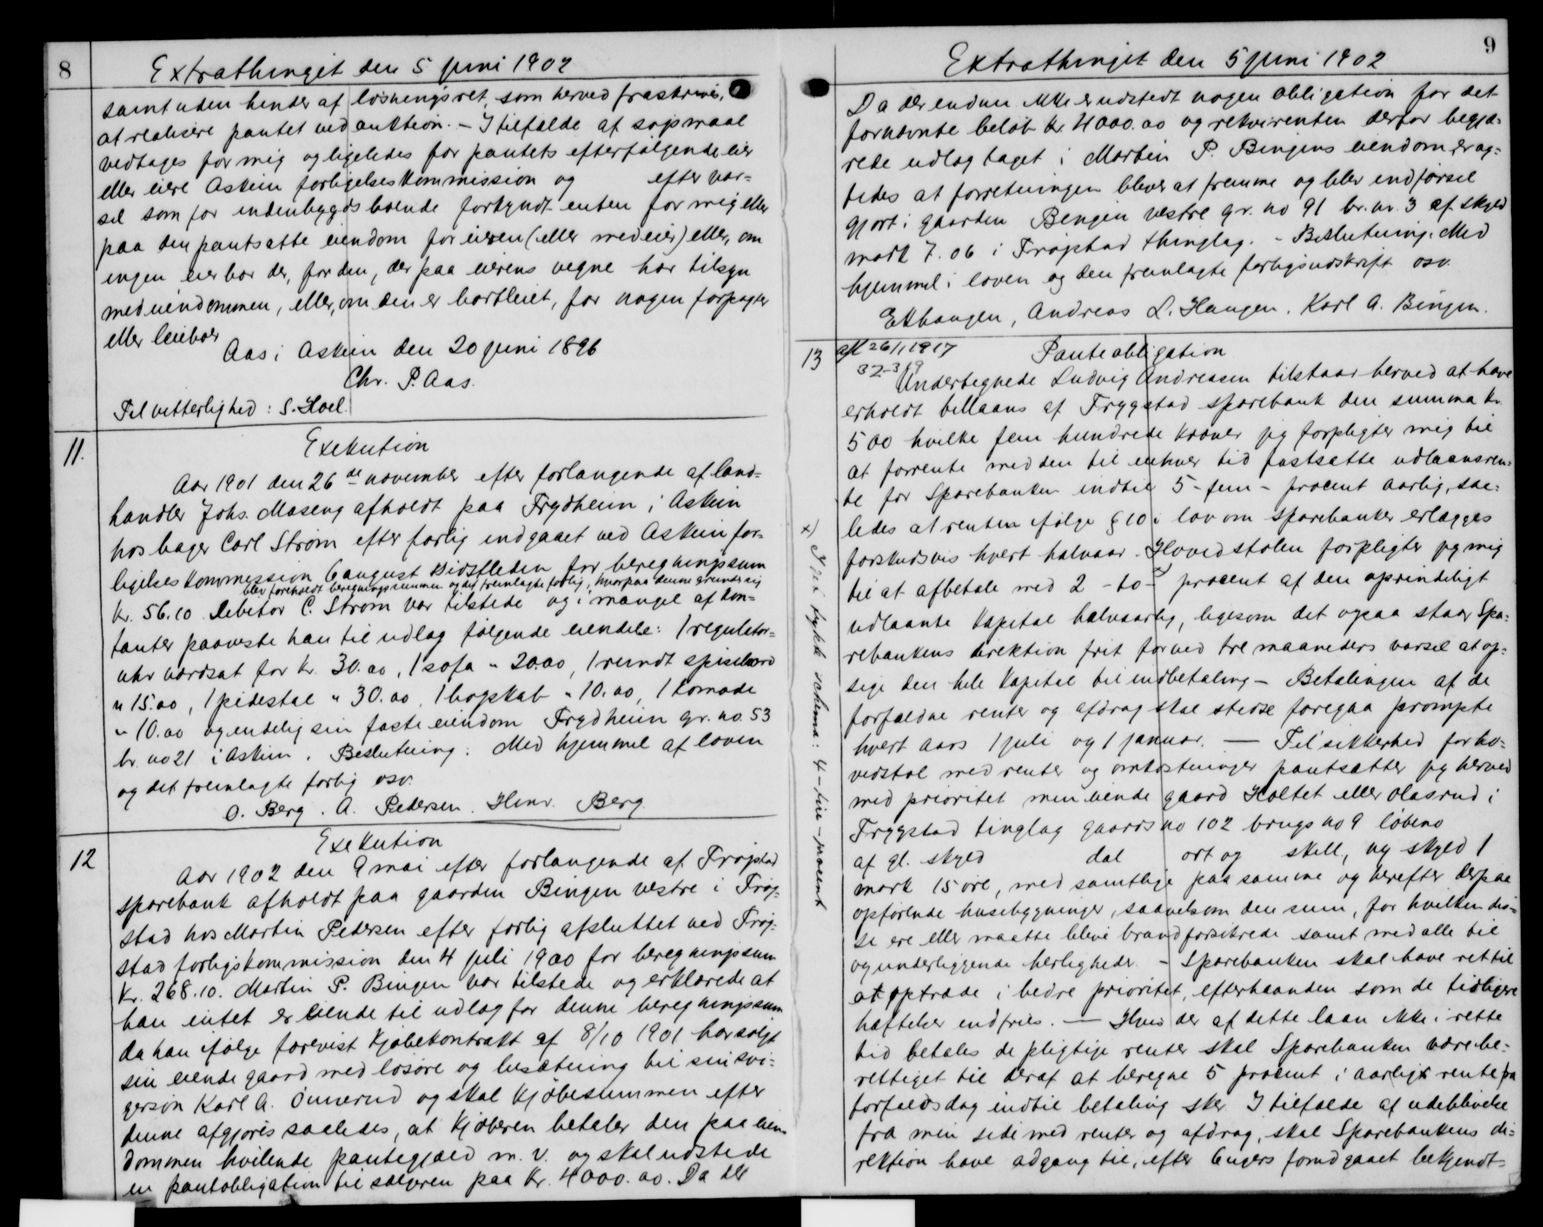 8
Extrathinget den 5 juni 1902
samt uden hinder af løsningsret, som herved fraskrives,
at realisere pantet ved auktion. – I tilfælde af søgsmaal
vedtages for mig og ligeledes for pantets efterfølgende eier
eller eiere Askim forligelseskommission og efter var=
sel som for indenbygds boende forkyndt enten for mig eller
paa den pantsatte eiendom for eieren (eller medeier) eller, om
ingen eier bor der, for den, der paa eierens vegne har tilsyn
med eiendommen, eller, om den er bortleiet, for nogen forpagter
eller leiebor
Aas i Askim den 20 juni 1896
Chr. P. Aas.
Til vitterlighed: S. Hoel.
11.
Exekution
Aar 1901 den 26de november efter forlangende af land=
handler Johs. Maseng afholdt paa Frydheim i Askim
hos bager Carl Strøm efter forlig indgaaet ved Askim for=
ligelseskommission 6 august sidstleden for beregningssum
blev foreholdt beregningssummen og det fremlagte forlig, hvorpaa denne grunder sig
kr. 56.10 Debitor C. Strøm var tilstede og i mangel af kon=
tanter paaviste han til udlæg følgende eiendele: 1 regulator=
uhr værdsat for kr. 30.00, 1 sofa " 20.00, 1 rundt spisebord
" 15.00, 1 pidestal " 30.00, 1 bogskab " 10.00, 1 komode
" 10.00 og endelig sin faste eiendom Frydheim gr. no. 53
br. no 21 i Askim. Beslutning: Med hjemmel af loven
og det fremlagte forlig osv.
O. Berg. A. Pedersen. Henr. Berg
12
Exekution
Aar 1902 den 9 mai efter forlangende af Trøgstad
sparebank afholdt paa gaarden Bingen vestre i Trøg=
stad hos Martin Pedersen efter forlig afsluttet ved Trøg=
stad forligskommission den 4 juli 1900 for beregningssum
Kr. 268.10. Martin P. Bingen var tilstede og erklærede at
han intet er eiende til udlæg for denne beregningssum
da han ifølge forevist kjøbekontrakt af 8/10 1901 har solgt
sin eiende gaard med løsøre og besætning til sin svi=
gersøn Karl A. Ønnerud og skal kjøbesummen efter
denne afgjøres saaledes, at kjøberen betaler den paa eien=
dommen hvilende pantegjæld m. v. og skal udstede
en pantobligation til sælgeren paa kr. 4000.00. Da der
9
Extrathinget den 5 juni 1902
Da der endnu ikke er udstedt nogen obligation for det
fornævnte beløb kr. 4000.00 og rekvirenten derfor begjæ=
rede udlæg taget i Martin P. Bingens eiendom, er ag=
tedes at forretningen bliver at fremme og blev indførsel
gjort i gaarden Bingen vestre gr. no 91 br. nr. 3 af skyld
mark 7.06 i Trøgstad thinglag. – Beslutning: Med
hjemmel i loven og den fremlagte forligsudskrift osv.
Ekhaugen, Andreas L. Haugen. Karl A. Bingen.
13
afl 26/1 1917
32-319
Panteobligation
Undertegnede Ludvig Andreasen tilstaar herved at have
erholdt tillaans af Trygstad sparebank den summa kr.
500 hvilke fem hundrede kroner jeg forpligter mig til
at forrente med den til enhver tid fastsatte udlaansren=
te for Sparebanken indtil 5 - fem - procent aarlig, saa=
ledes at renten ifølge § 10 i lov om sparebanker erlægges
forskudsvis hvert halvaar. Hovedstolen forpligter jeg mig
til at afbetale med 2 - to -x) procent af den oprindeligt
udlaante kapital halvaarlig, ligesom det ogsaa staar Spa=
rebankens direktion frit for ved tre maaneders varsel at op=
sige den hele kapital til indbetaling – Betalingen af de
forfaldne renter og afdrag skal stedse foregaa prompte
hvert aars 1 juli og 1 januar. — Til sikkerhed for ho=
vedstol med renter og omkostninger pantsætter jeg herved
med prioritet min eiende gaard Holtet eller Olasrud i
Trygstad tinglag gaards no 102 brugs no 9 løbeno
af gl. skyld dal ort og skill, ny skyld 1
mark 15 øre, med samtlige paa samme og herefter derpaa
opførende husebygninger, saavelsom den sum, for hvilken dis=
se ere eller maatte blive brandforsikrede samt med alle til
og underliggende herligheder. – Sparebanken skal have ret til
at optræde i bedre prioritet, efterhaanden som de tidligere
hæftelser endfries. — Hvis der af dette laan ikke i rette
tid betales de pligtige renter skal Sparebanken være be=
rettiget til deraf at beregne 5 procent i aarlige rente fra
forfaldsdag indtil betaling sker. I tilfælde af udeblivelse
fra min side med renter og afdrag, skal Sparebankens di=
rektion have adgang til, efter 6 ugers forudgaaet bekjendt=
x) I det trykte schema: 4 - fire - procent